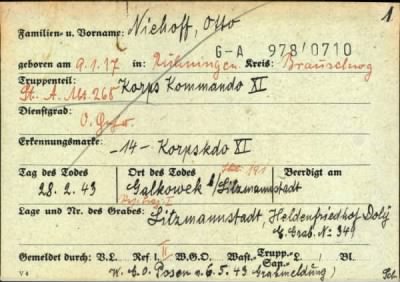 1
Familien- u. Vorname: Niehoff, Otto
G-A 978/0710
geboren am 9.1.17 in: Rühningen Kreis: Braunschwg
Truppenteil: Korps Kommando XI
St. A. Nr. 268
Dienstgrad: O. Gefr.
Erkennungsmarke: -14- Korpskdo XI
Tag des Todes Ort des Todes Beerdigt am
28.2.43 Galkowek b/Litzmannstadt
Lage und Nr. des Grabes: Litzmannstadt, Heldenfriedhof Doly
E. Grab. No 349
Gemeldet durch: V.L. Ref. II W.G.O. Wast.- Trupp.- L. Bl.
San.-
V 6 W.G.O. Posen a. 6.5.43 Grabmeldung)